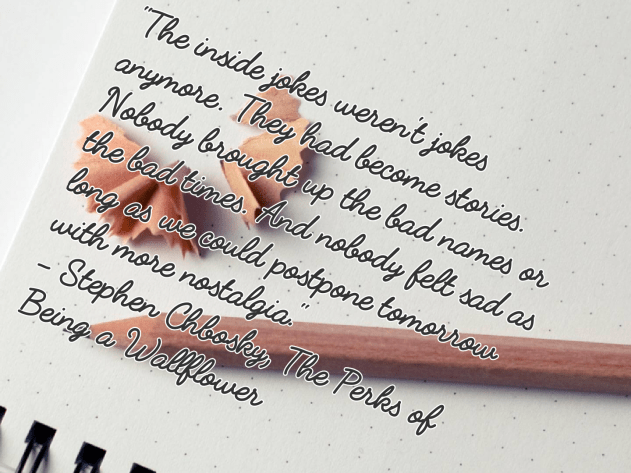 "The inside jokes weren't jokes
anymore. They had become stories.
Nobody brought up the bad names or
the bad times. And nobody felt sad as
long as we could postpone tomorrow
with more nostalgia."
- Stephen Chbosky, The Perks of
Being a Wallflower